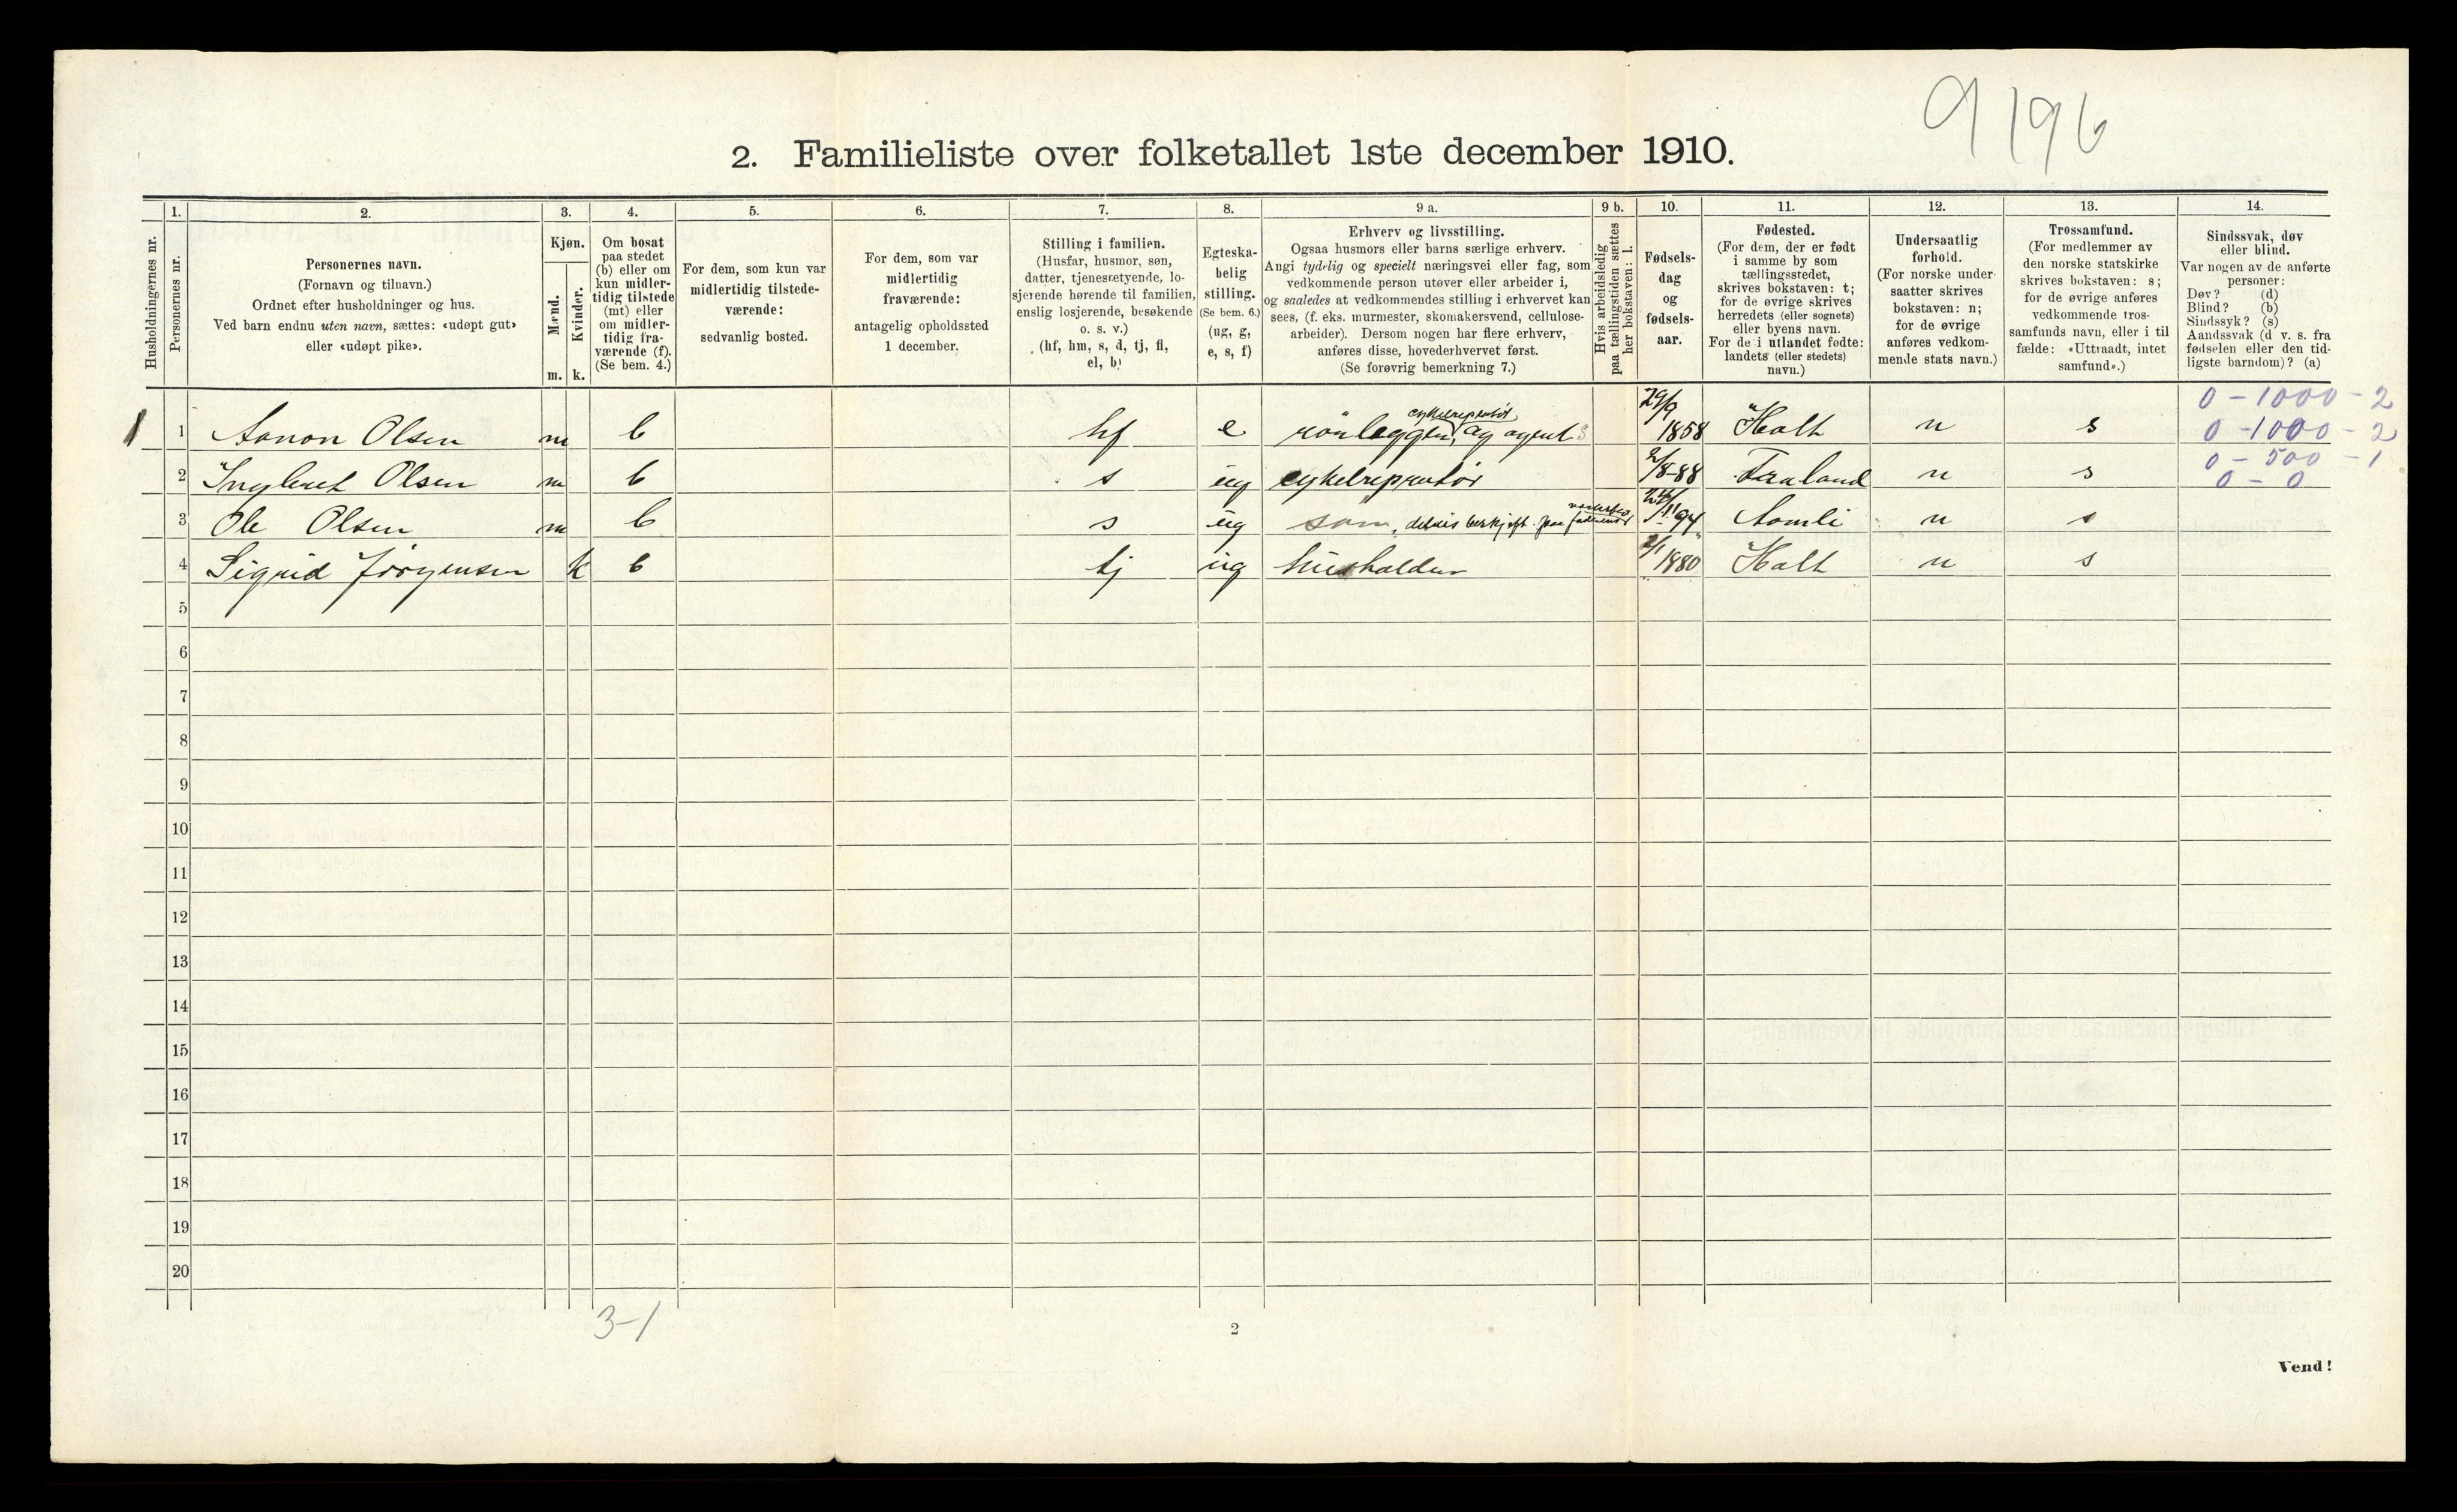 9196
2. Familieliste over folketallet 1ste december 1910.
1. 2. 3. 4. 5. 6. 7. 8. 9 a. 9 b. 10. 11. 12. 13. 14.
Husholdningernes nr.
Personernes nr.
Personernes navn.
(Fornavn og tilnavn.)
Ordnet efter husholdninger og hus.
Ved barn endnu uten navn, sættes: «udøpt gut»
eller «udøpt pike».
Kjøn.
Mænd.
Kvinder.
m. k.
Om bosat
paa stedet
(b) eller om
kun midler-
tidig tilstede
(mt) eller
om midler-
tidig fra-
værende (f).
(Se bem. 4.)
For dem, som kun var
midlertidig tilstede-
værende:
sedvanlig bosted.
For dem, som var
midlertidig
fraværende:
antagelig opholdssted
1 december.
Stilling i familien.
(Husfar, husmor, søn,
datter, tjenestetyende, lo-
sjerende hørende til familien,
enslig losjerende, besøkende
o. s. v.)
(hf, hm, s, d, tj, fl,
el, b)
Egteska-
belig
stilling.
(Se bem. 6.)
(ug, g,
e, s, f)
Erhverv og livsstilling.
Ogsaa husmors eller barns særlige erhverv.
Angi tydelig og specielt næringsvei eller fag, som
vedkommende person utøver eller arbeider i,
og saaledes at vedkommendes stilling i erhvervet kan
sees, (f. eks. murmester, skomakersvend, cellulose-
arbeider). Dersom nogen har flere erhverv,
anføres disse, hovederhvervet først.
(Se forøvrig bemerkning 7.)
Hvis arbeidsledig
paa tællingstiden sættes
her bokstaven: l.
Fødsels-
dag
og
fødsels-
aar.
Fødested.
(For dem, der er født
i samme by som
tællingsstedet,
skrives bokstaven: t;
for de øvrige skrives
herredets (eller sognets)
eller byens navn.
For de i utlandet fødte:
landets (eller stedets)
navn.)
Undersaatlig
forhold.
(For norske under-
saatter skrives
bokstaven: n;
for de øvrige
anføres vedkom-
mende stats navn.)
Trossamfund.
(For medlemmer av
den norske statskirke
skrives bokstaven: s;
for de øvrige anføres
vedkommende tros-
samfunds navn, eller i til
fælde: «Uttraadt, intet
samfund».)
Sindssvak, døv
eller blind.
Var nogen av de anførte
personer:
Døv? (d)
Blind? (b)
Sindssyk? (s)
Aandssvak (d v. s. fra
fødselen eller den tid-
ligste barndom)? (a)
0 - 1000 - 2
cykelreparatör
1 1 Aanon Olsen m b hf e rörlegger, og agent 29/9 1858 Holt n s 0 - 1000 - 2
0 - 500 - 1
2 Ingbret Olsen m b s ug cykelreparatör 2/8-88 Froland n s 0 - 0
3 Ole Olsen m b s ug søn, delvis beskjeft. paa faderens 11 94 Aamli n s
4 Sigrid Jörgensen k b tj ug husholder 2/1 1880 Holt n s
5
6
7
8
9
10
11
12
13
14
15
16
17
18
19
20
3-1
2
Vend!